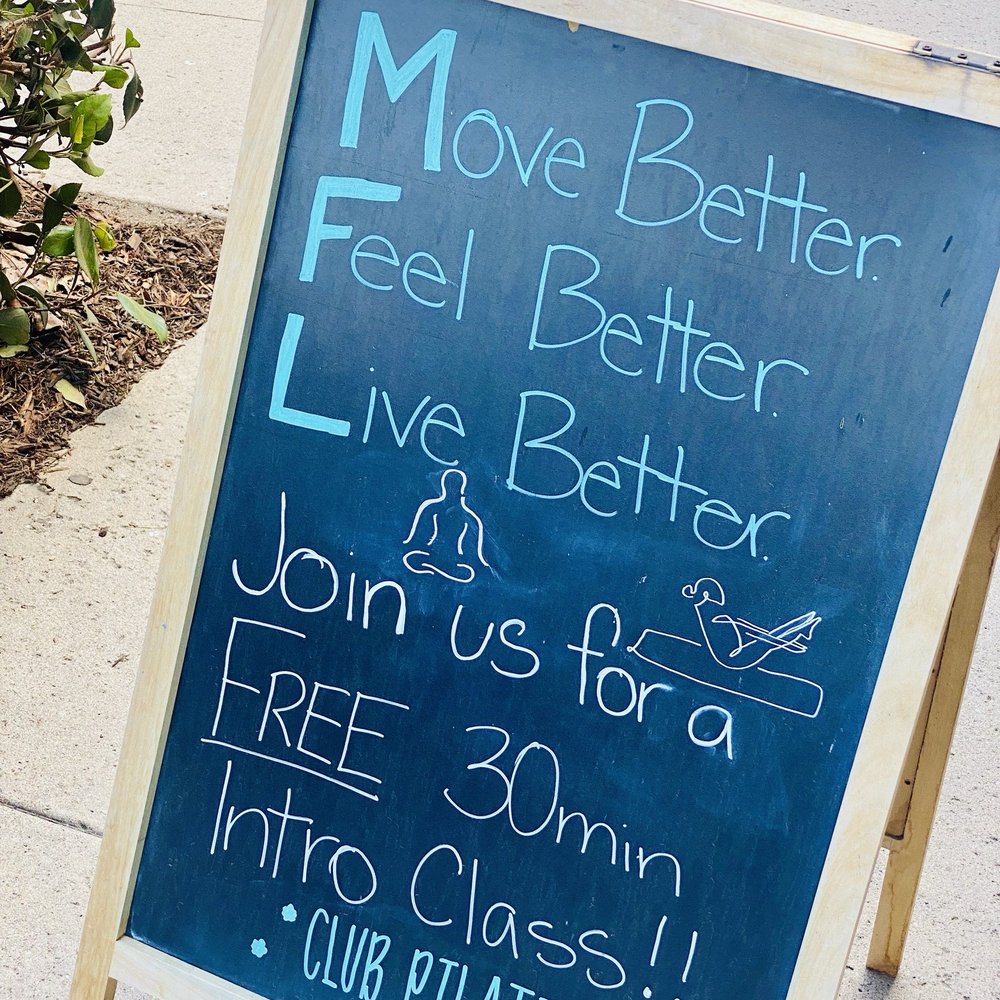 Move Better.
Feel Better.
Live Better.
Join us for a
FREE 30min
Intro Class!!
CLUB